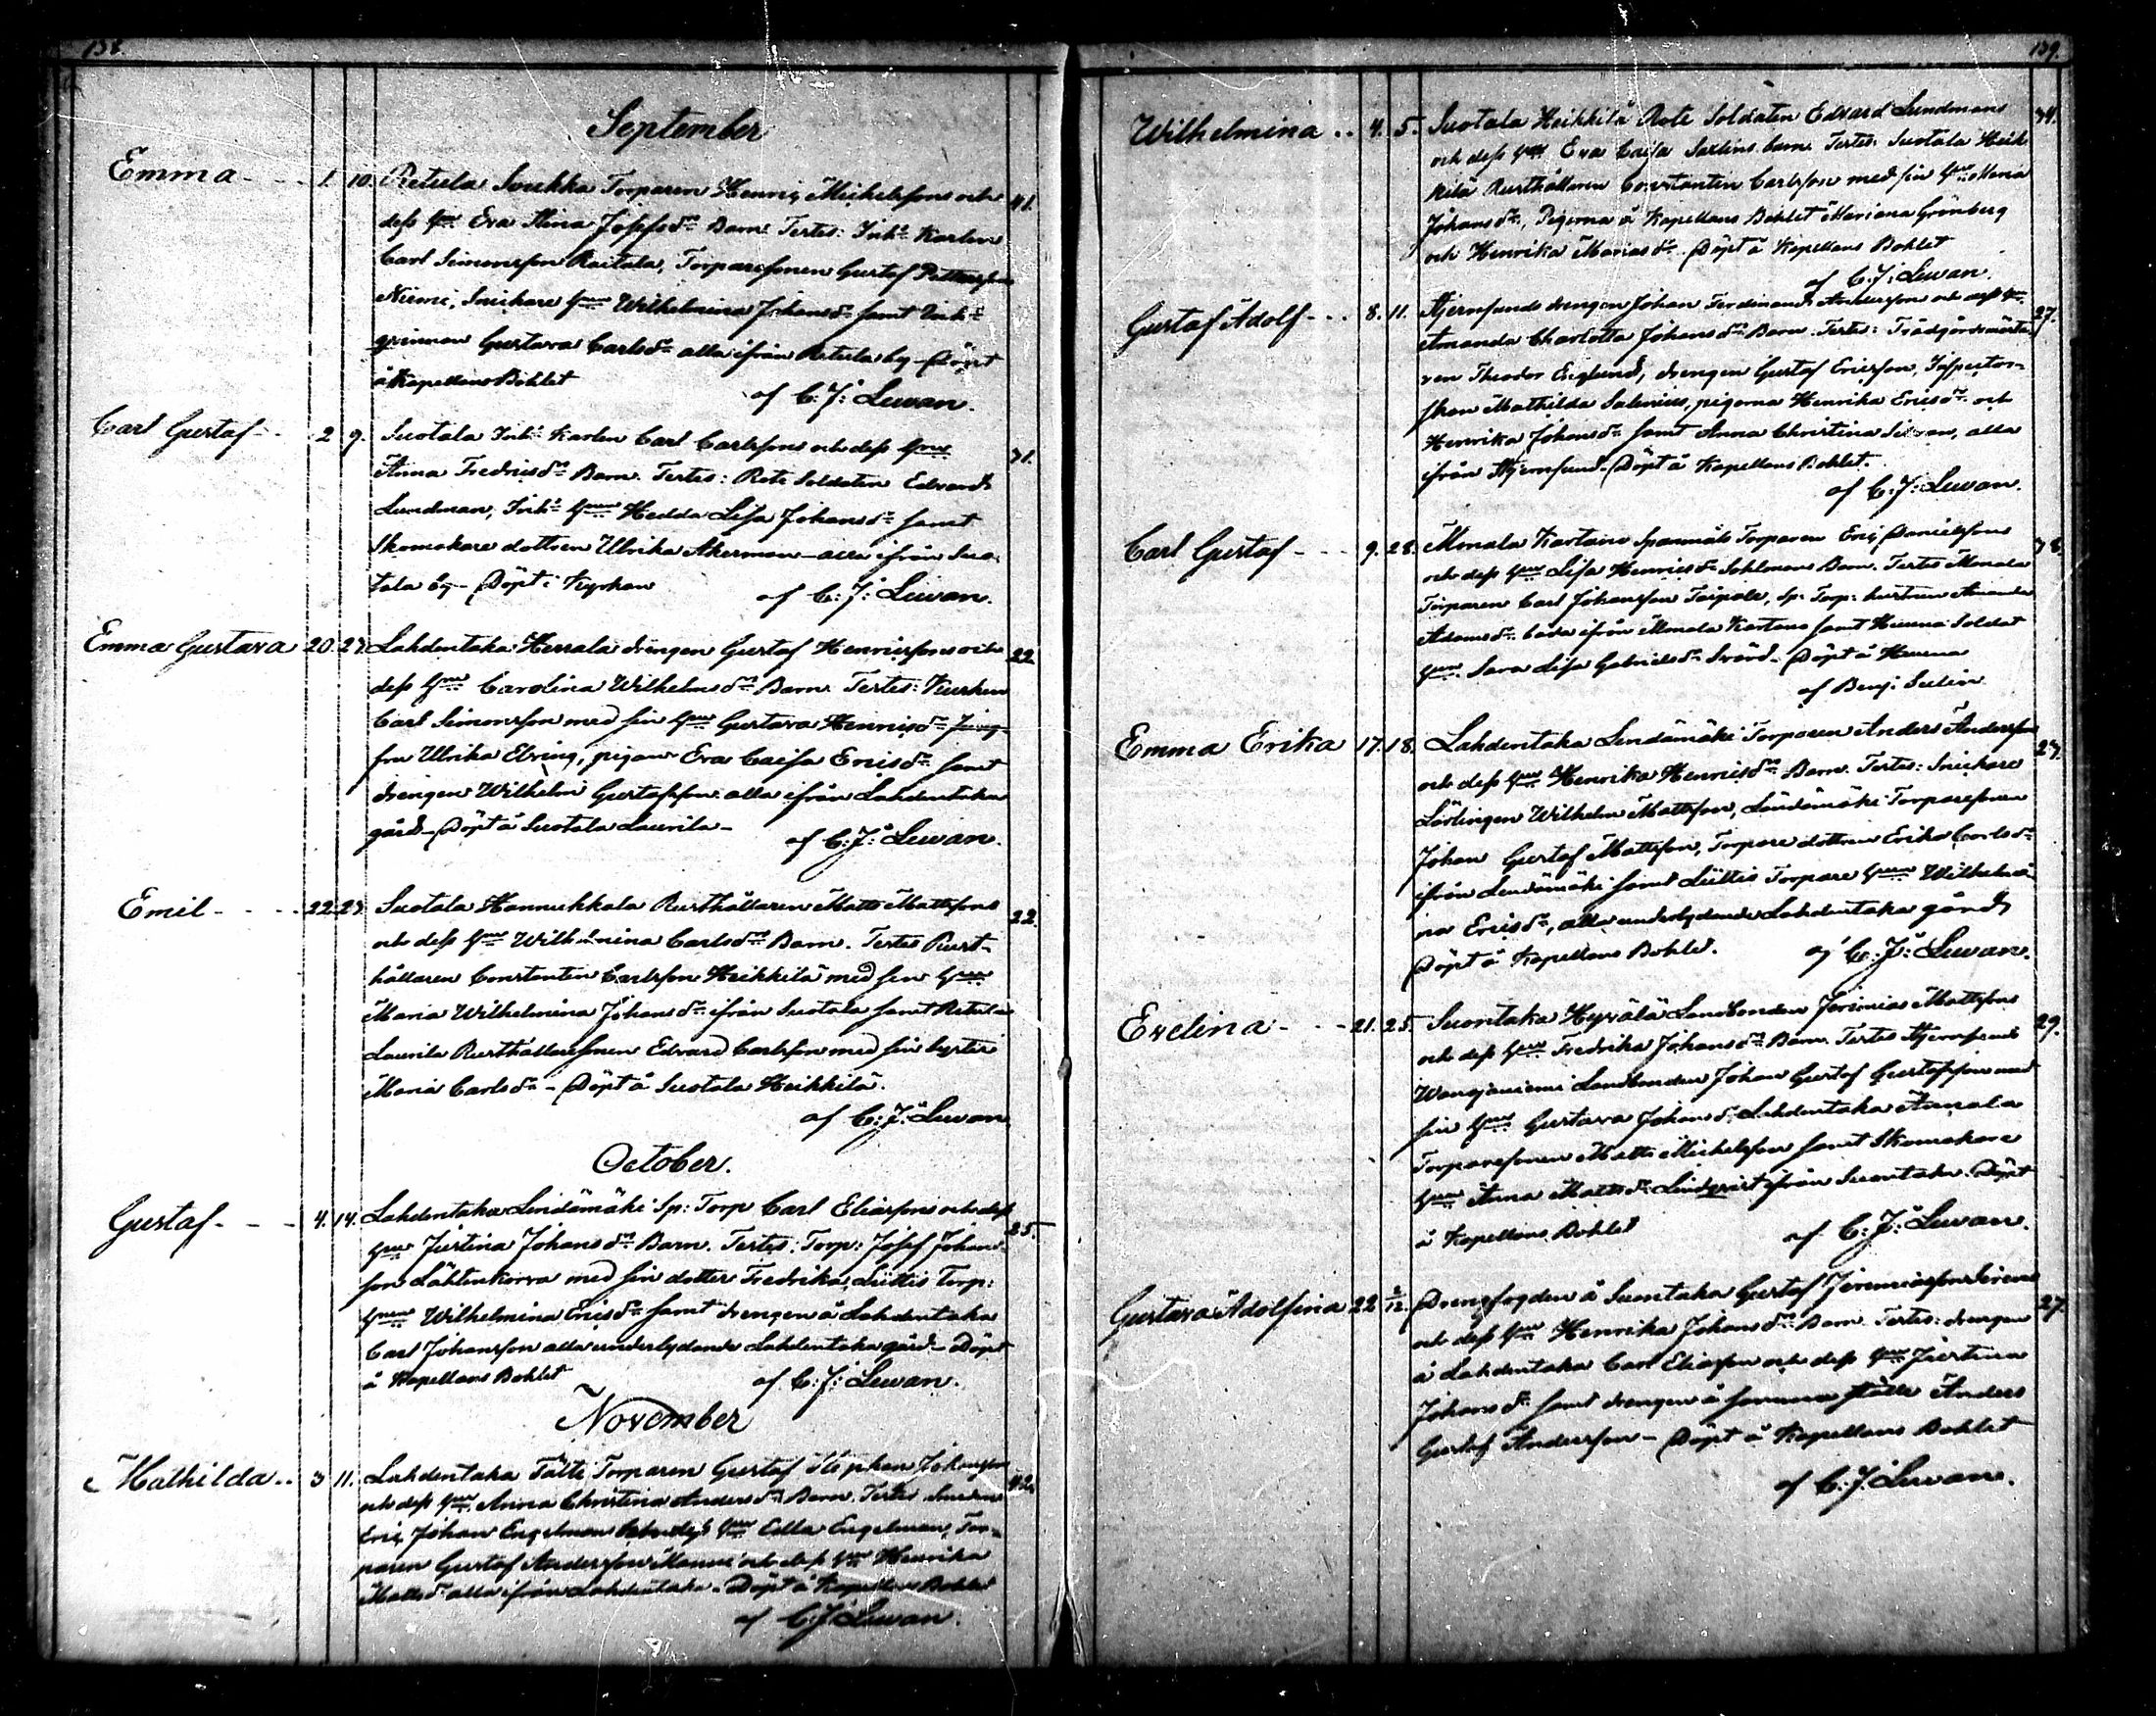 138.
September
Emma - - - 1. 10. Retula Soukka Torparen Henric Michelssons och 41.
dess Hu Eva Stina Josefsdr Barn. Testes: Inh: Karlen
Carl Simonsson Raitala, Torparesonen Gustaf Pettersson
Niemi, Snickare Hun Wilhelmina Johansdr samt Inh:
qvinnan Gustava Carlsdr alla ifrån Retula by - Döpt
å Kapellans Bohlet
af C: J: Lewan.
Carl Gustaf - - 2 9. Suotala Inh: Karlen Carl Carlssons och dess Hus 31.
Anna Fredricsdr Barn. Testes: Rote Soldaten Edvard
Lundman, Inh: Hun Hedda Lisa Johansdr samt
Skomakare dottren Ulrika Åkerman - alla ifrån Suo-
tala by - Döpt i Kyrkan
af C: J: Lewan.
Emma Gustava 20. 27. Lahdentaka Herrala drengen Gustaf Henricssons och 22.
dess Hus Carolina Wilhelmsdr Barn. Testes: Kusken
Carl Simonsson med sin Hu Gustava Henricsdr Jung-
fru Ulrika Elving, pigan Eva Caisa Ericsdr samt
drengen Wilhelm Gustafsson alla ifrån Lahdentaka
gård - Döpt å Suotala Laurila -
af C: J: Lewan.
Emil - - - - 22. 27. Suotala Hannukkala Rusthållaren Matts Mattssons 22.
och dess Hus Wilhelmina Carlsdr Barn. Testes Rust-
hållaren Constantin Carlsson Heikkilä med sin Hu
Maria Wilhelmina Johansdr ifrån Suotala samt Retula
Laurila Rusthållaresonen Edvard Carlsson med sin syster
Maria Carlsdr - Döpt å Suotala Heikkilä.
af C: J: Lewan
October.
Gustaf - - - 4. 14. Lahdentaka Lindämäki Sp: Torp Carl Eliassons och dess 25.
Hus Justina Johansdr Barn. Testes: Torp: Josef Johans-
son Lähtenkorva med sin dotter Fredrika, Liittis Torp:
Hun Wilhelmina Ericsdr samt drengen å Lahdentaka
Carl Johansson alla underlydande Lahdentaka gård - Döpt
å Kapellans Bohlet af C: J: Lewan.
November
Mathilda - - 3 11. Lahdentaka Tätti Torparen Gustaf Stephan Johansson 42.
och dess Hus Anna Christina Andersdr Barn. Testes Smeden
Eric Johan Engelman och dess Hu Edla Engelman, Tor-
paren Gustaf Andersson Manni och dess Hu Henrika
Mattsdr alla ifrån Lahdentaka - Döpt å Kapellans Bohlet
af C: J: Lewan.
139.
Wilhelmina - - 4. 5. Suotala Heikkilä Rote Soldaten Edvard Lundmans 34.
och dess Hus Eva Caisa Saxlins barn. Testes: Suotala Heik-
kilä Rusthållaren Constantin Carlsson med sin Hu Maria
Johansdr, Pigorna å Kapellans Bohlet Mariana Grönberg
och Henrika Mariasdr. Döpt å Kapellans Bohlet
af C: J: Lewan.
Gustaf Adolf - - - 8. 11. Hjernsunds drengen Johan Ferdinand Anderssons och dess Hus 27.
Amanda Charlotta Johansdr Barn. Testes: Trädgårdsmästa-
ren Theodor Englund, drengen Gustaf Ericsson, Inspector-
skan Mathilda Salenius, pigorna Henrika Ericsdr och
Henrika Johansdr samt Anna Christina alla
ifrån Hjernsund. Döpt å Kapellans Bohlet.
af C: J: Lewan.
Carl Gustaf - - - 9. 28. Monala Kartano Spannmåls Torparen Eric Danielssons 38.
och dess Hus Lisa Henricsdr Sohlmans Barn. Testes Monala
Torparen Carl Johansson Taipale, Sp: Torp: hustrun Amanda
Adamsdr båda ifrån Monala Kartano samt Soldat
Hun Sara Lisa Gabrielsdr Svärd - Döpt å
af Benj. Selin
Emma Erika 17. 18. Lahdentaka Lindämäki Torparen Anders Andersson 27.
och dess Hus Henrika Henricsdr Barn. Testes: Snickare
Lärlingen Wilhelm Mattsson, Lindämäki Torparesonen
Johan Gustaf Mattsson, Torpare dottren Erika Carlsdr
ifrån Lindämäki samt Liittis Torpare Hun Wilhelmi-
na Ericsdr, alla underlydande Lahdentaka gård
Döpt å Kapellans Bohlet. af C: J: Lewan.
Evelina - - - 21. 25. Suontaka Hyrälä Landbonden Jeremias Mattssons 29.
och dess Hus Fredrika Johansdr Barn. Testes Hjernsunds
Wansjoniemi Landbonden Johan Gustaf Gustafsson med
sin Hu Gustava Johansdr, Lahdentaka Annala
Torparesonen Matts Michelsson samt Skomakare
Hun Anna Mattsdr Lindqvist ifrån Suontaka. Döpt
å Kapellans Bohlet af C: J: Lewan.
Gustava Adolfina 22 2/12. Drengfogden å Suontaka Gustaf Jeremiasson 27.
och dess Hus Henrika Johansdr Barn. Testes: drengen
å Lahdentaka Carl Eliasson och dess Hu Justina
Johansdr samt drengen å samma ställe Anders
Gustaf Andersson - Döpt å Kapellans Bohlet
af C: J: Lewan.